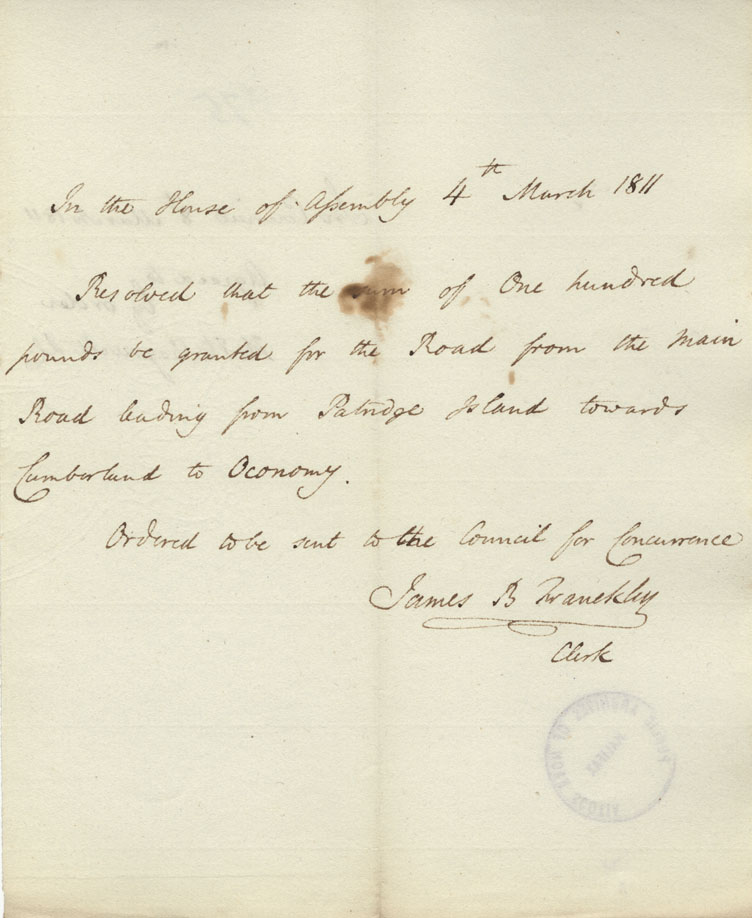 In the House of Assembly 4th March 1811
Resolved that the sum of One hundred
pounds be granted for the Road from the Main
Road leading from Patridge Island towards
Cumberland to Oconomy.
Ordered to be sent to the Council for Concurrence
James B Franckley
Clerk
PUBLIC ARCHIVES OF NOVA SCOTIA
HALIFAX